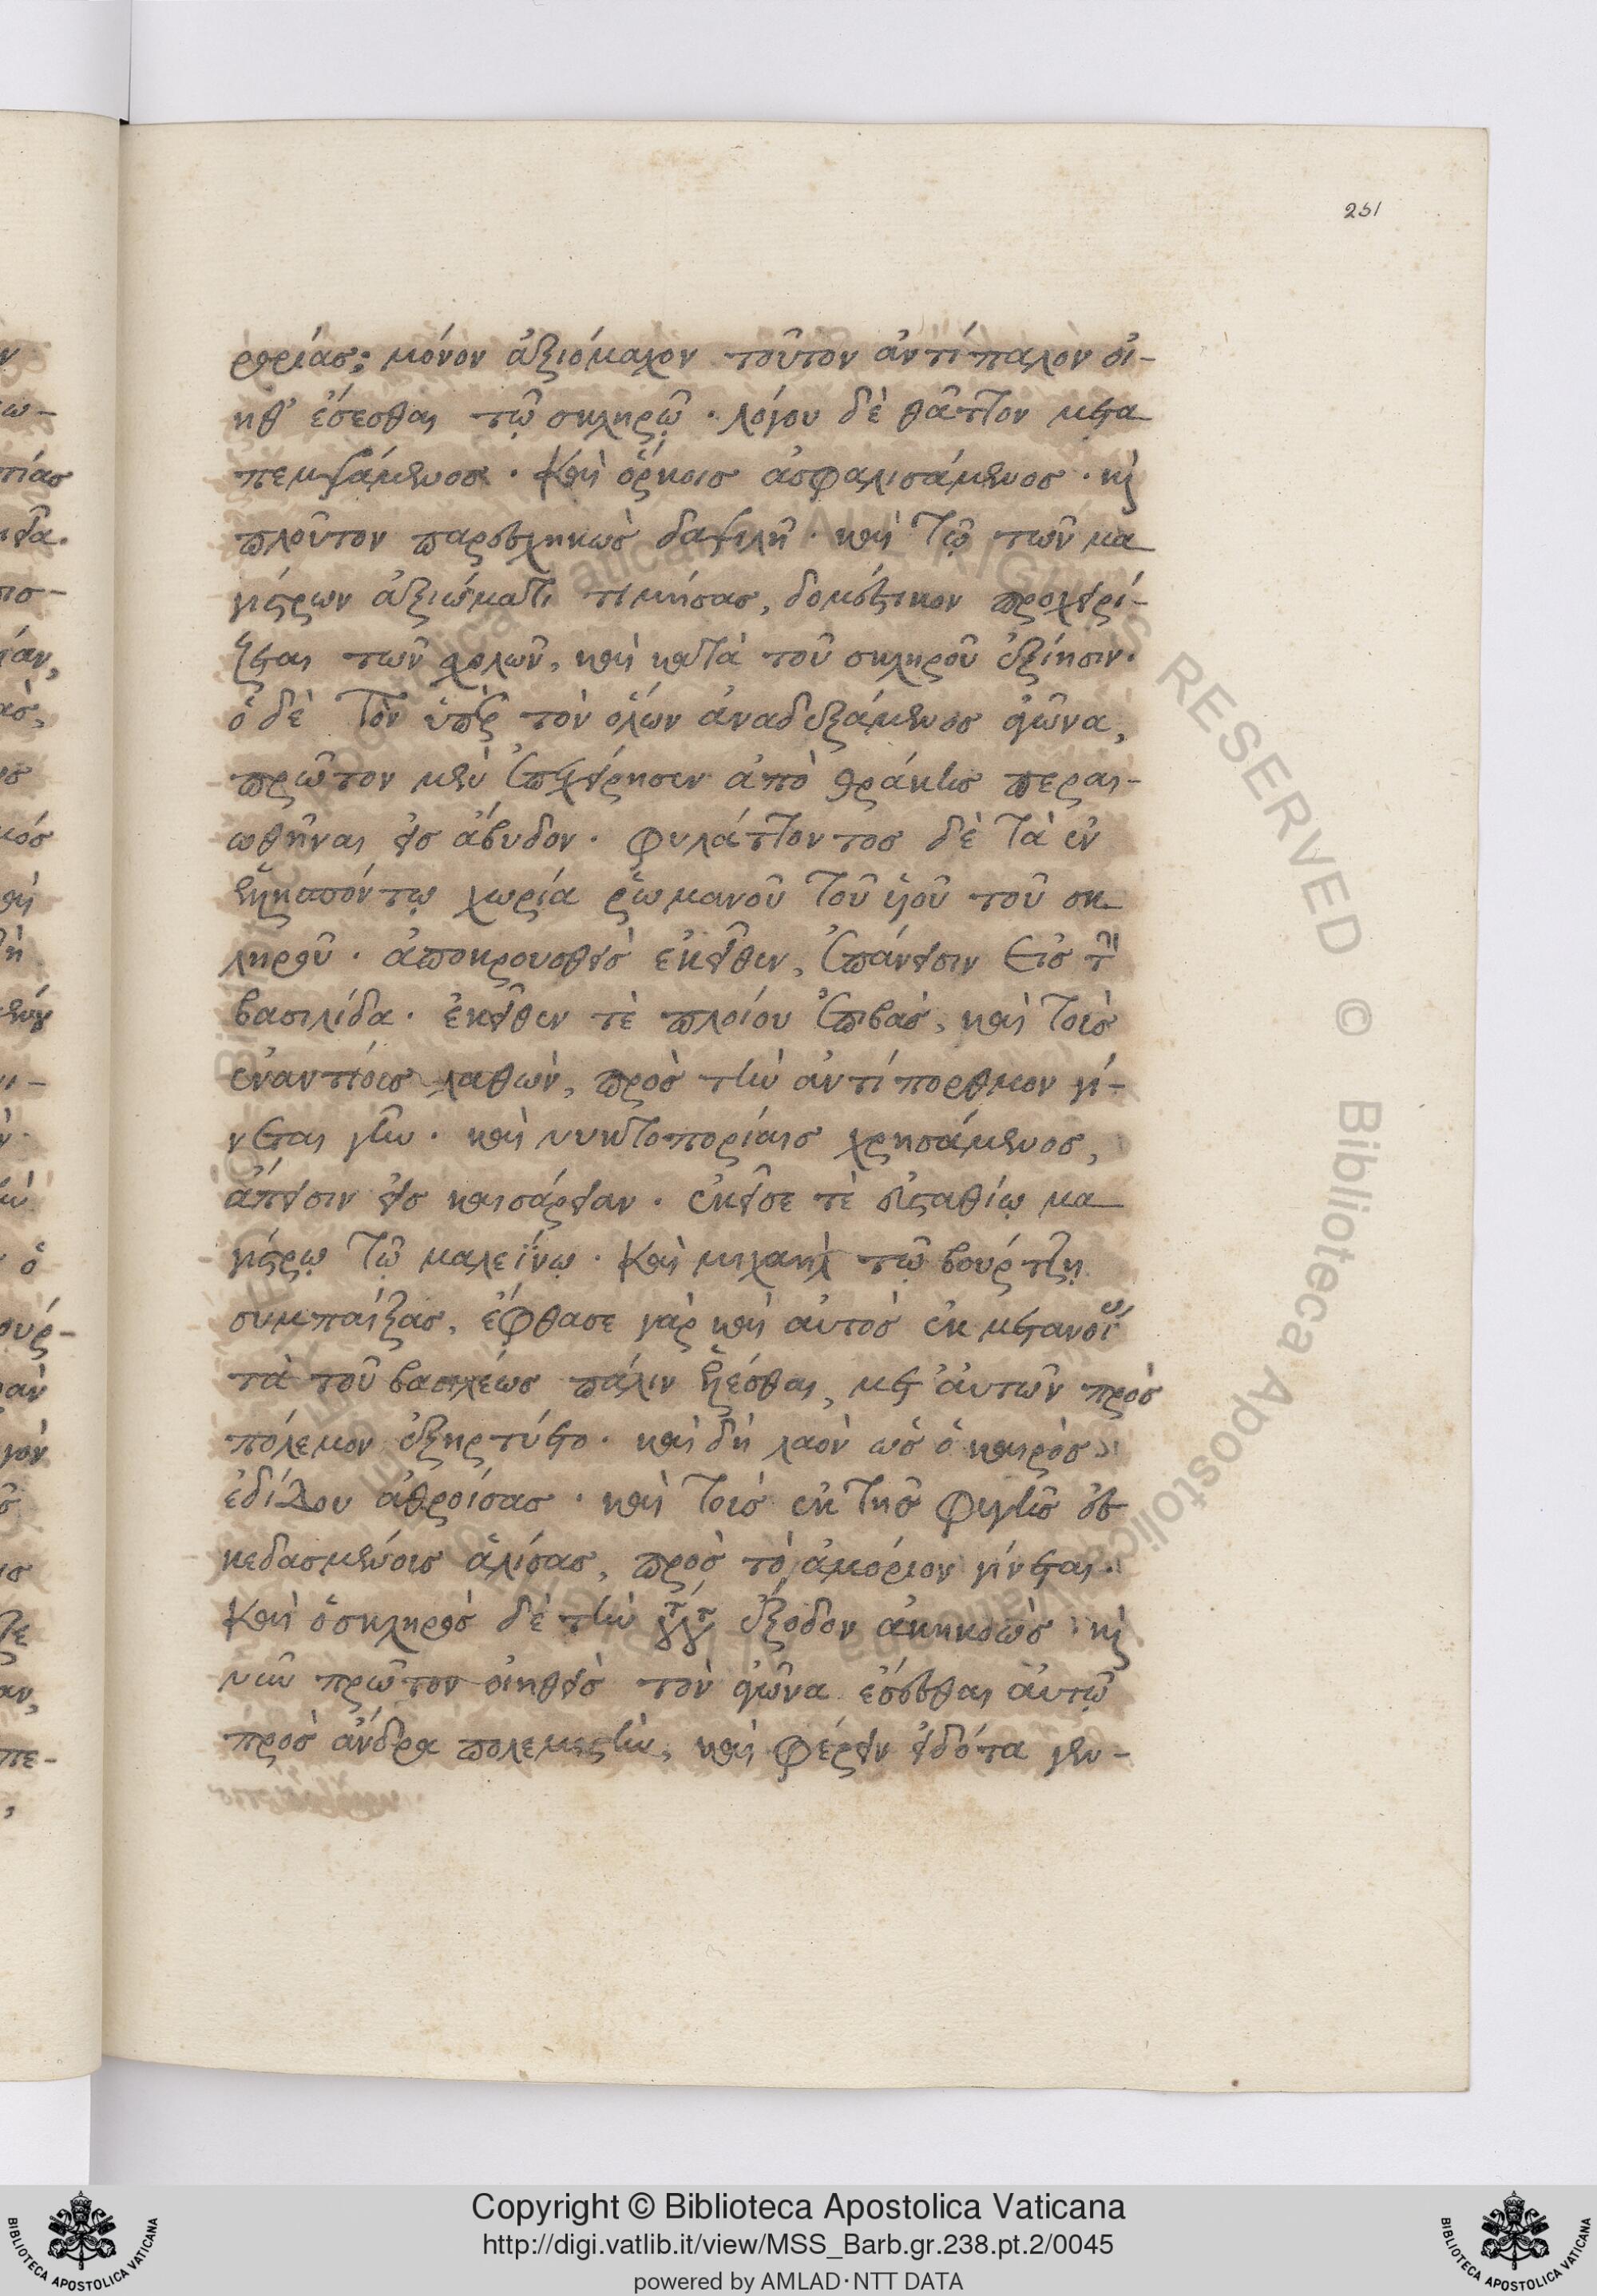 251
ρθρίας· μόνον ἀξιόμαχον τοῦτον ἀντίπαλον οἰ-
ηθ' ἔσεσθαι τῷ σκληρῷ. λόγου δὲ θᾶττον μετα
πεμψάμενος. καὶ ὅρκοις ἀσφαλισάμενος. καὶ
πλοῦτον παρεσχηκὼς δαψιλῆ. καὶ τῷ τῶν μα
γίστρων ἀξιώματι τιμήσας, δομέστικον προχειρί-
ζεται τῶν σχολῶν, καὶ κατὰ τοῦ σκληροῦ ἐξίησιν.
ὁ δὲ τὸν ὑπὲρ τὸν ὅλων ἀναδεξάμενος ἀγῶνα,
πρῶτον μὲν ἐπεχείρησεν ἀπὸ θράκης περαι-
ωθῆναι εἰς ἄβυδον. φυλάττοντος δὲ τὰ ἐν
ἑλλησπόντῳ χωρία ῥωμανοῦ τοῦ υἱοῦ τοῦ σκ
ληροῦ. ἀποκρουσθεὶς ἐκεῖθεν, ἐπάνεισιν εἰς τὴν
βασιλίδα. ἐκεῖθεν τὲ πλοίου ἐπιβὰς, καὶ τοὶς
ἐναντίοις λαθὼν, πρὸς τὴν ἀντίπορθμον γί-
νεται γῆν. καὶ νυκτοπορίαις χρησάμενος,
ἄπεισιν εἰς καισάρειαν. ἐκεῖσε τὲ εὐσταθίῳ μα
γίστρῳ τῷ μαλεΐνῳ. καὶ μιχαηλ τῷ βούρτζῃ
συμπαίξας, ἔφθασε γὰρ καὶ αὐτὸς ἐκ μετανοί
τὰ τοῦ βασιλέως πάλιν ἑλέσθαι, μετ' ἀυτῶν πρὸς
πόλεμον ἐξηρτύετο. καὶ δὴ λαὸν ὡς ὁ καιρὸς
ἐδίδου ἀθροίσας. καὶ τοὶς ἐκ τῆς φυγῆς ἐσ
κεδασμένοις ἁλίσας, πρὸς τὸ ἀμόριον γίνεται.
καὶ ὁ σκληρὸς δὲ τὴν ἔξοδον ἀκηκοὼς καὶ
νῦν πρῶτον οἰηθεὶς τὸν ἀγῶνα ἔσεσθαι ἀυτῷ
πρὸς ἄνδρα πολεμιστὴν, καὶ φέρειν εἰδότα γεν-
Copyright © Biblioteca Apostolica Vaticana
http://digi.vatlib.it/view/MSS_Barb.gr.238.pt.2/0045
powered by AMLAD·NTT DATA
BIBLIOTECA APOSTOLICA VATICANA
BIBLIOTECA APOSTOLICA VATICANA